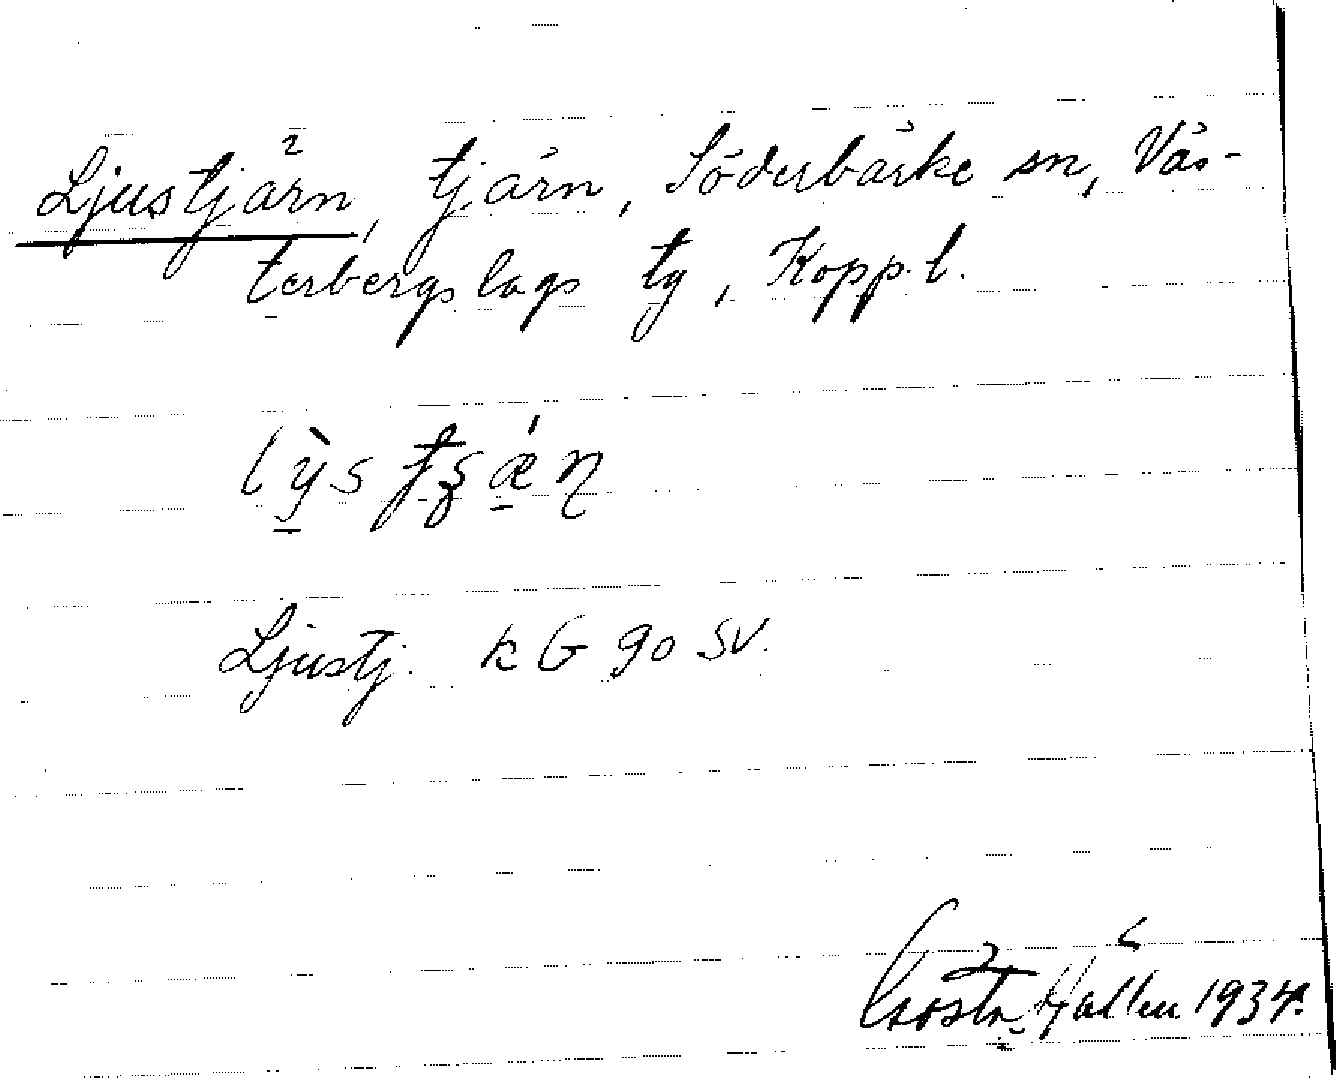 Ljustjärn, tjärn, Söderbärke sn, Väs-
terbergslags tg, Kopp. l.
Ljustj. k G 90 SV.
Gösta 1934.